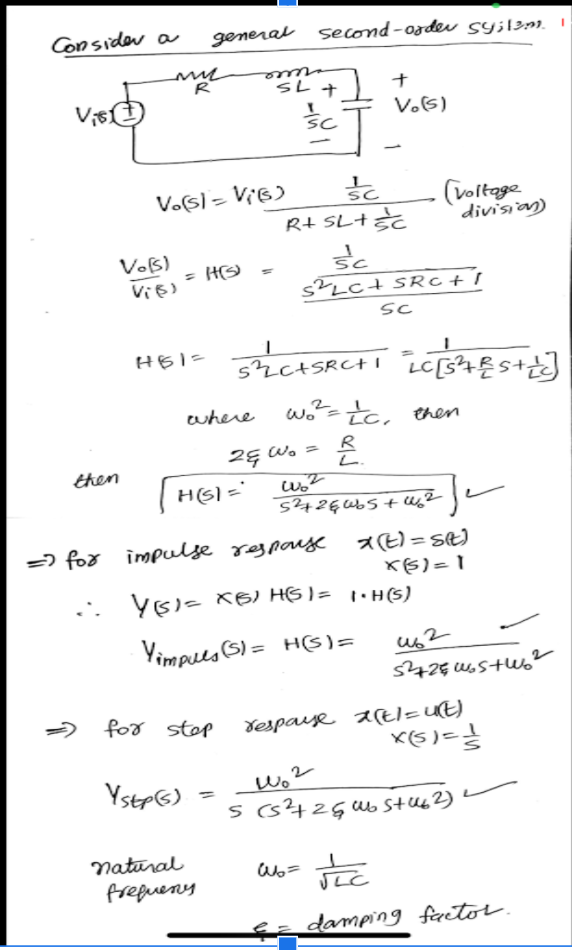 Consider a general second-order system.
R
SL +
+
Vi(s)
1/SC
Vo(s)
-
-
Vo(s) = Vi(s) (1/SC)/(R + SL + 1/SC) (Voltage division)
Vo(s)/Vi(s) = H(s) = (1/SC)/((S²LC + SRC + 1)/SC)
H(s) = 1/(S²LC + SRC + 1) = 1/(LC[S² + R/L S + 1/LC])
where ω₀² = 1/LC, then
2ξω₀ = R/L.
then H(s) = ω₀²/(S² + 2ξω₀S + ω₀²) ✓
=> for impulse response x(t) = δ(t)
X(s) = 1
∴ Y(s) = X(s) H(s) = 1·H(s)
Yimpuls(s) = H(s) = ω₀²/(S² + 2ξω₀S + ω₀²) ✓
=> for step response x(t) = u(t)
X(s) = 1/S
Ystp(s) = ω₀²/(S (S² + 2ξω₀S + ω₀²)) ✓
natural frequency ω₀ = 1/√LC
ξ = damping factor.